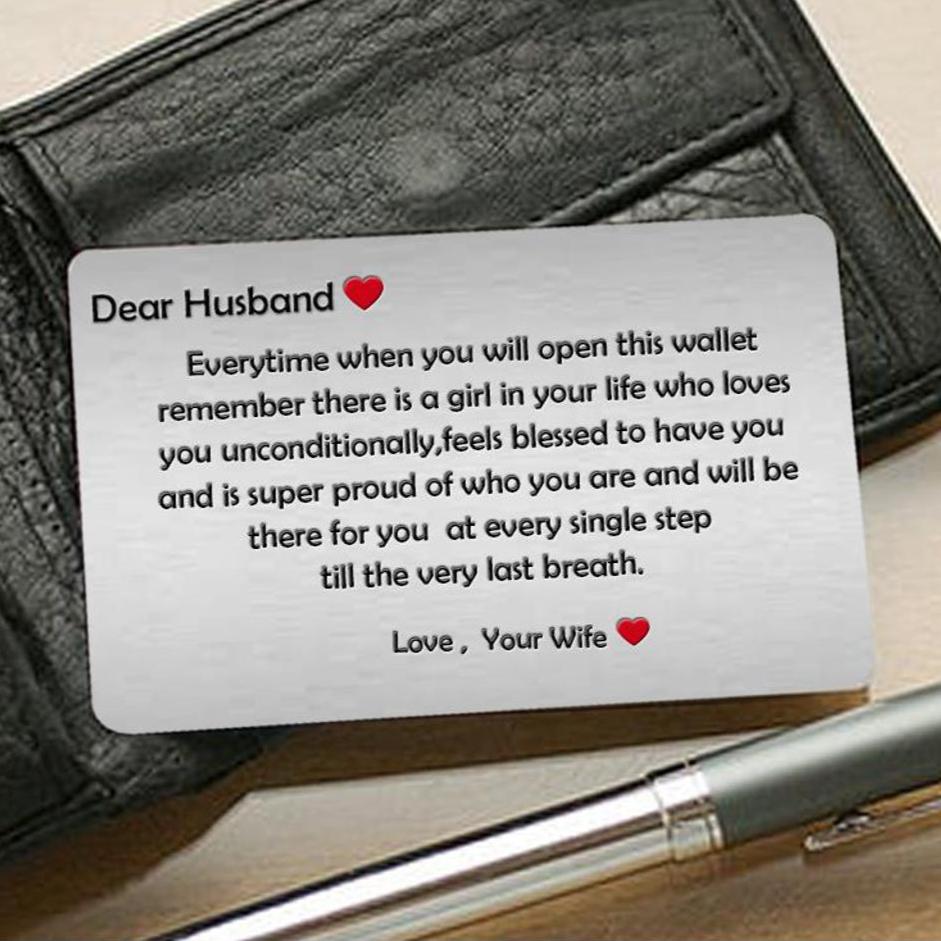 Dear Husband ❤
Everytime when you will open this wallet
remember there is a girl in your life who loves
you unconditionally,feels blessed to have you
and is super proud of who you are and will be
there for you at every single step
till the very last breath.
Love , Your Wife ❤